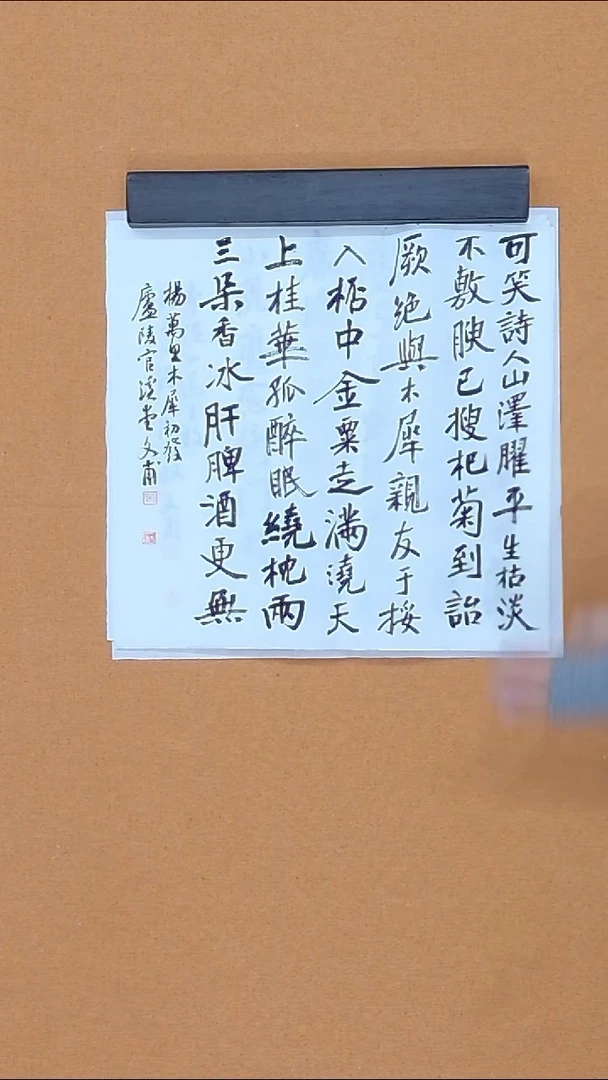 可笑詩人山澤臞平生枯淡
不敷腴已搜杞菊到詒
厥絶與木犀親友于挼
入桮中金粟走滿澆天
上桂華孤醉眠繞枕兩
三朵香冰肝脾酒更無
楊萬里木犀初發
廬陵官溪堂文甫